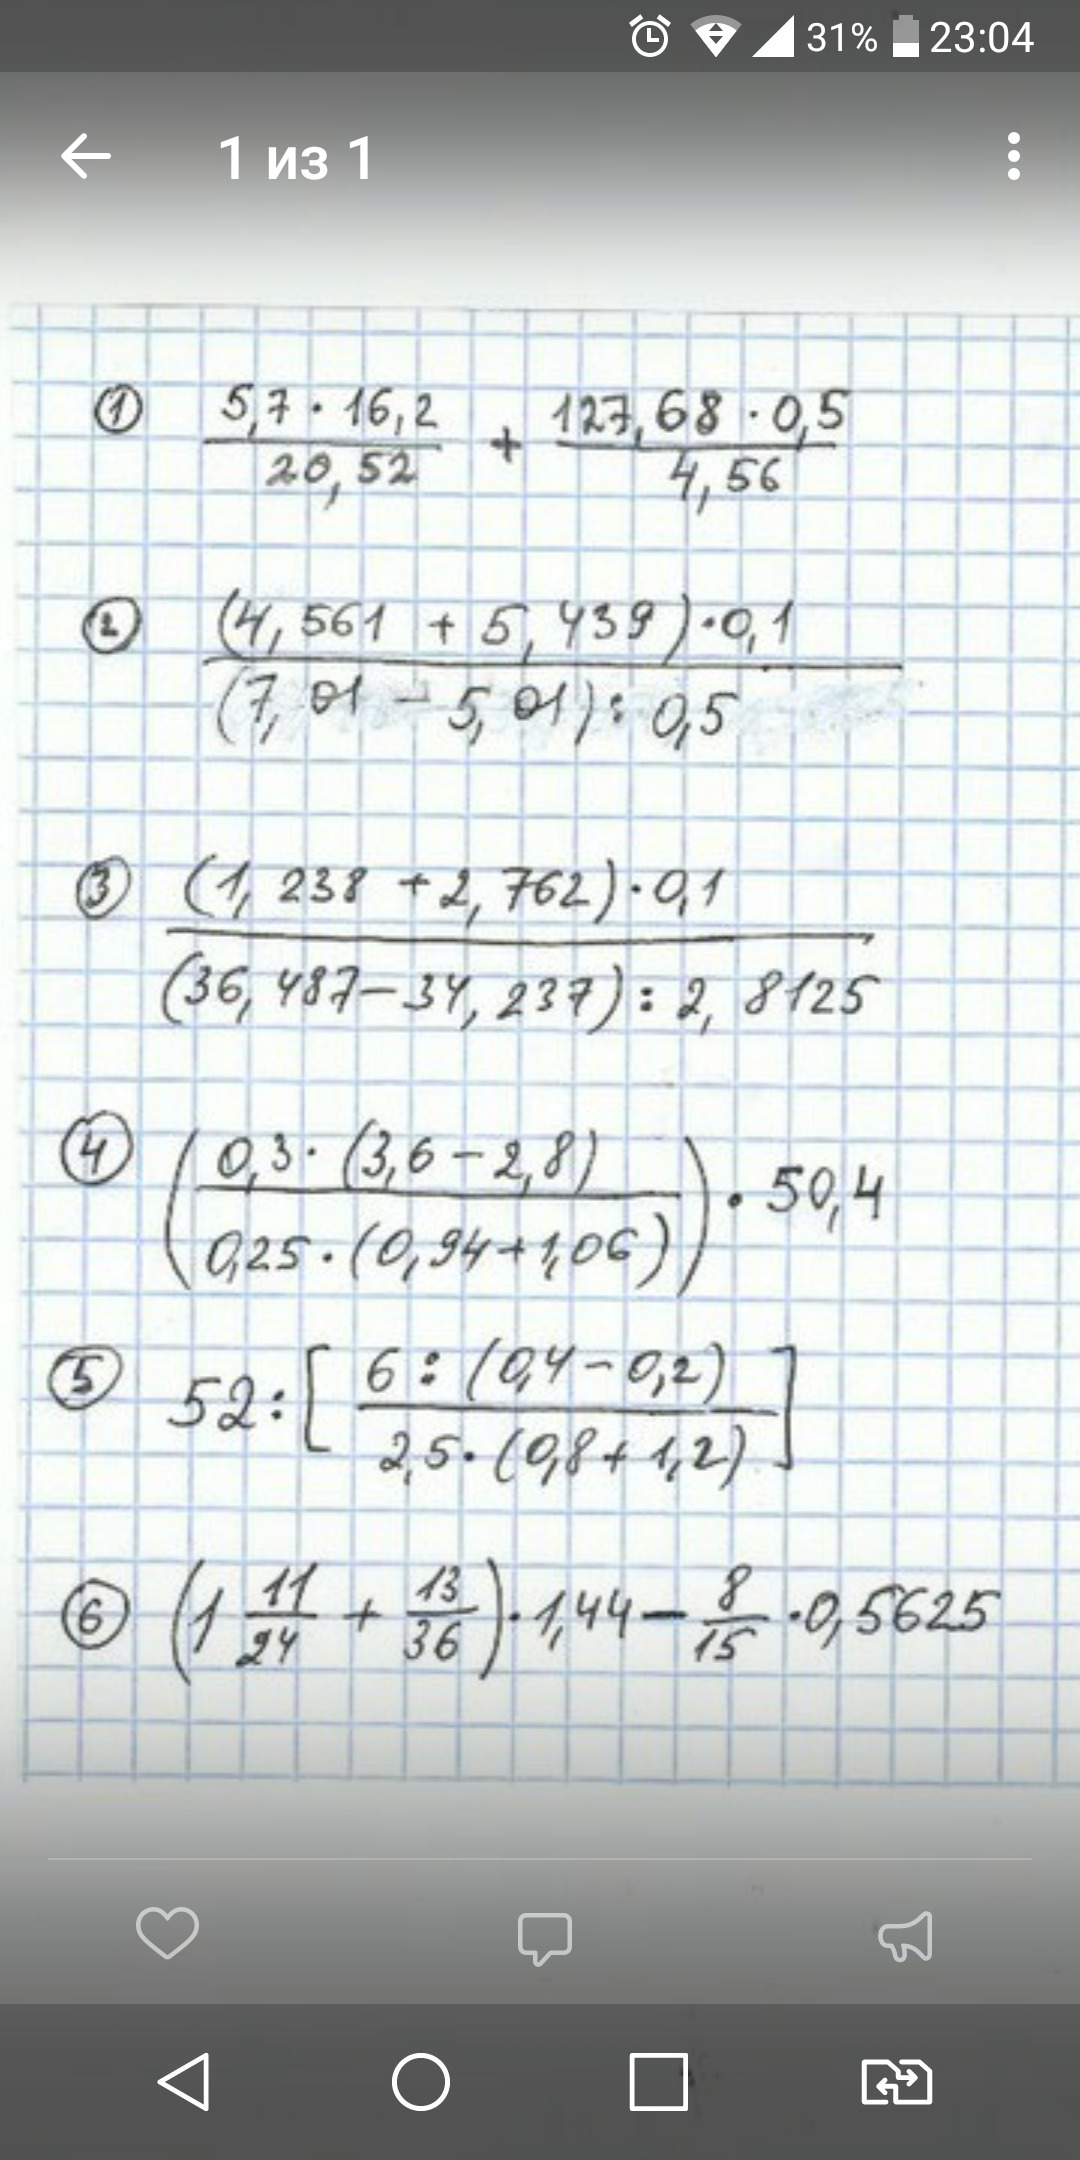 31% 23:04
1 из 1
① 5,7 · 16,2 / 20,52 + 127,68 · 0,5 / 4,56
② (4,561 + 5,439) · 0,1 / (7,01 − 5,01) : 0,5
③ (1,238 + 2,762) · 0,1 / (36,487 − 34,237) : 2,8125
④ (0,3 · (3,6 − 2,8) / 0,25 · (0,94 + 1,06)) · 50,4
⑤ 52 : [6 : (0,4 − 0,2) / 2,5 · (0,8 + 1,2)]
⑥ (1 11/24 + 13/36) · 1,44 − 8/15 · 0,5625